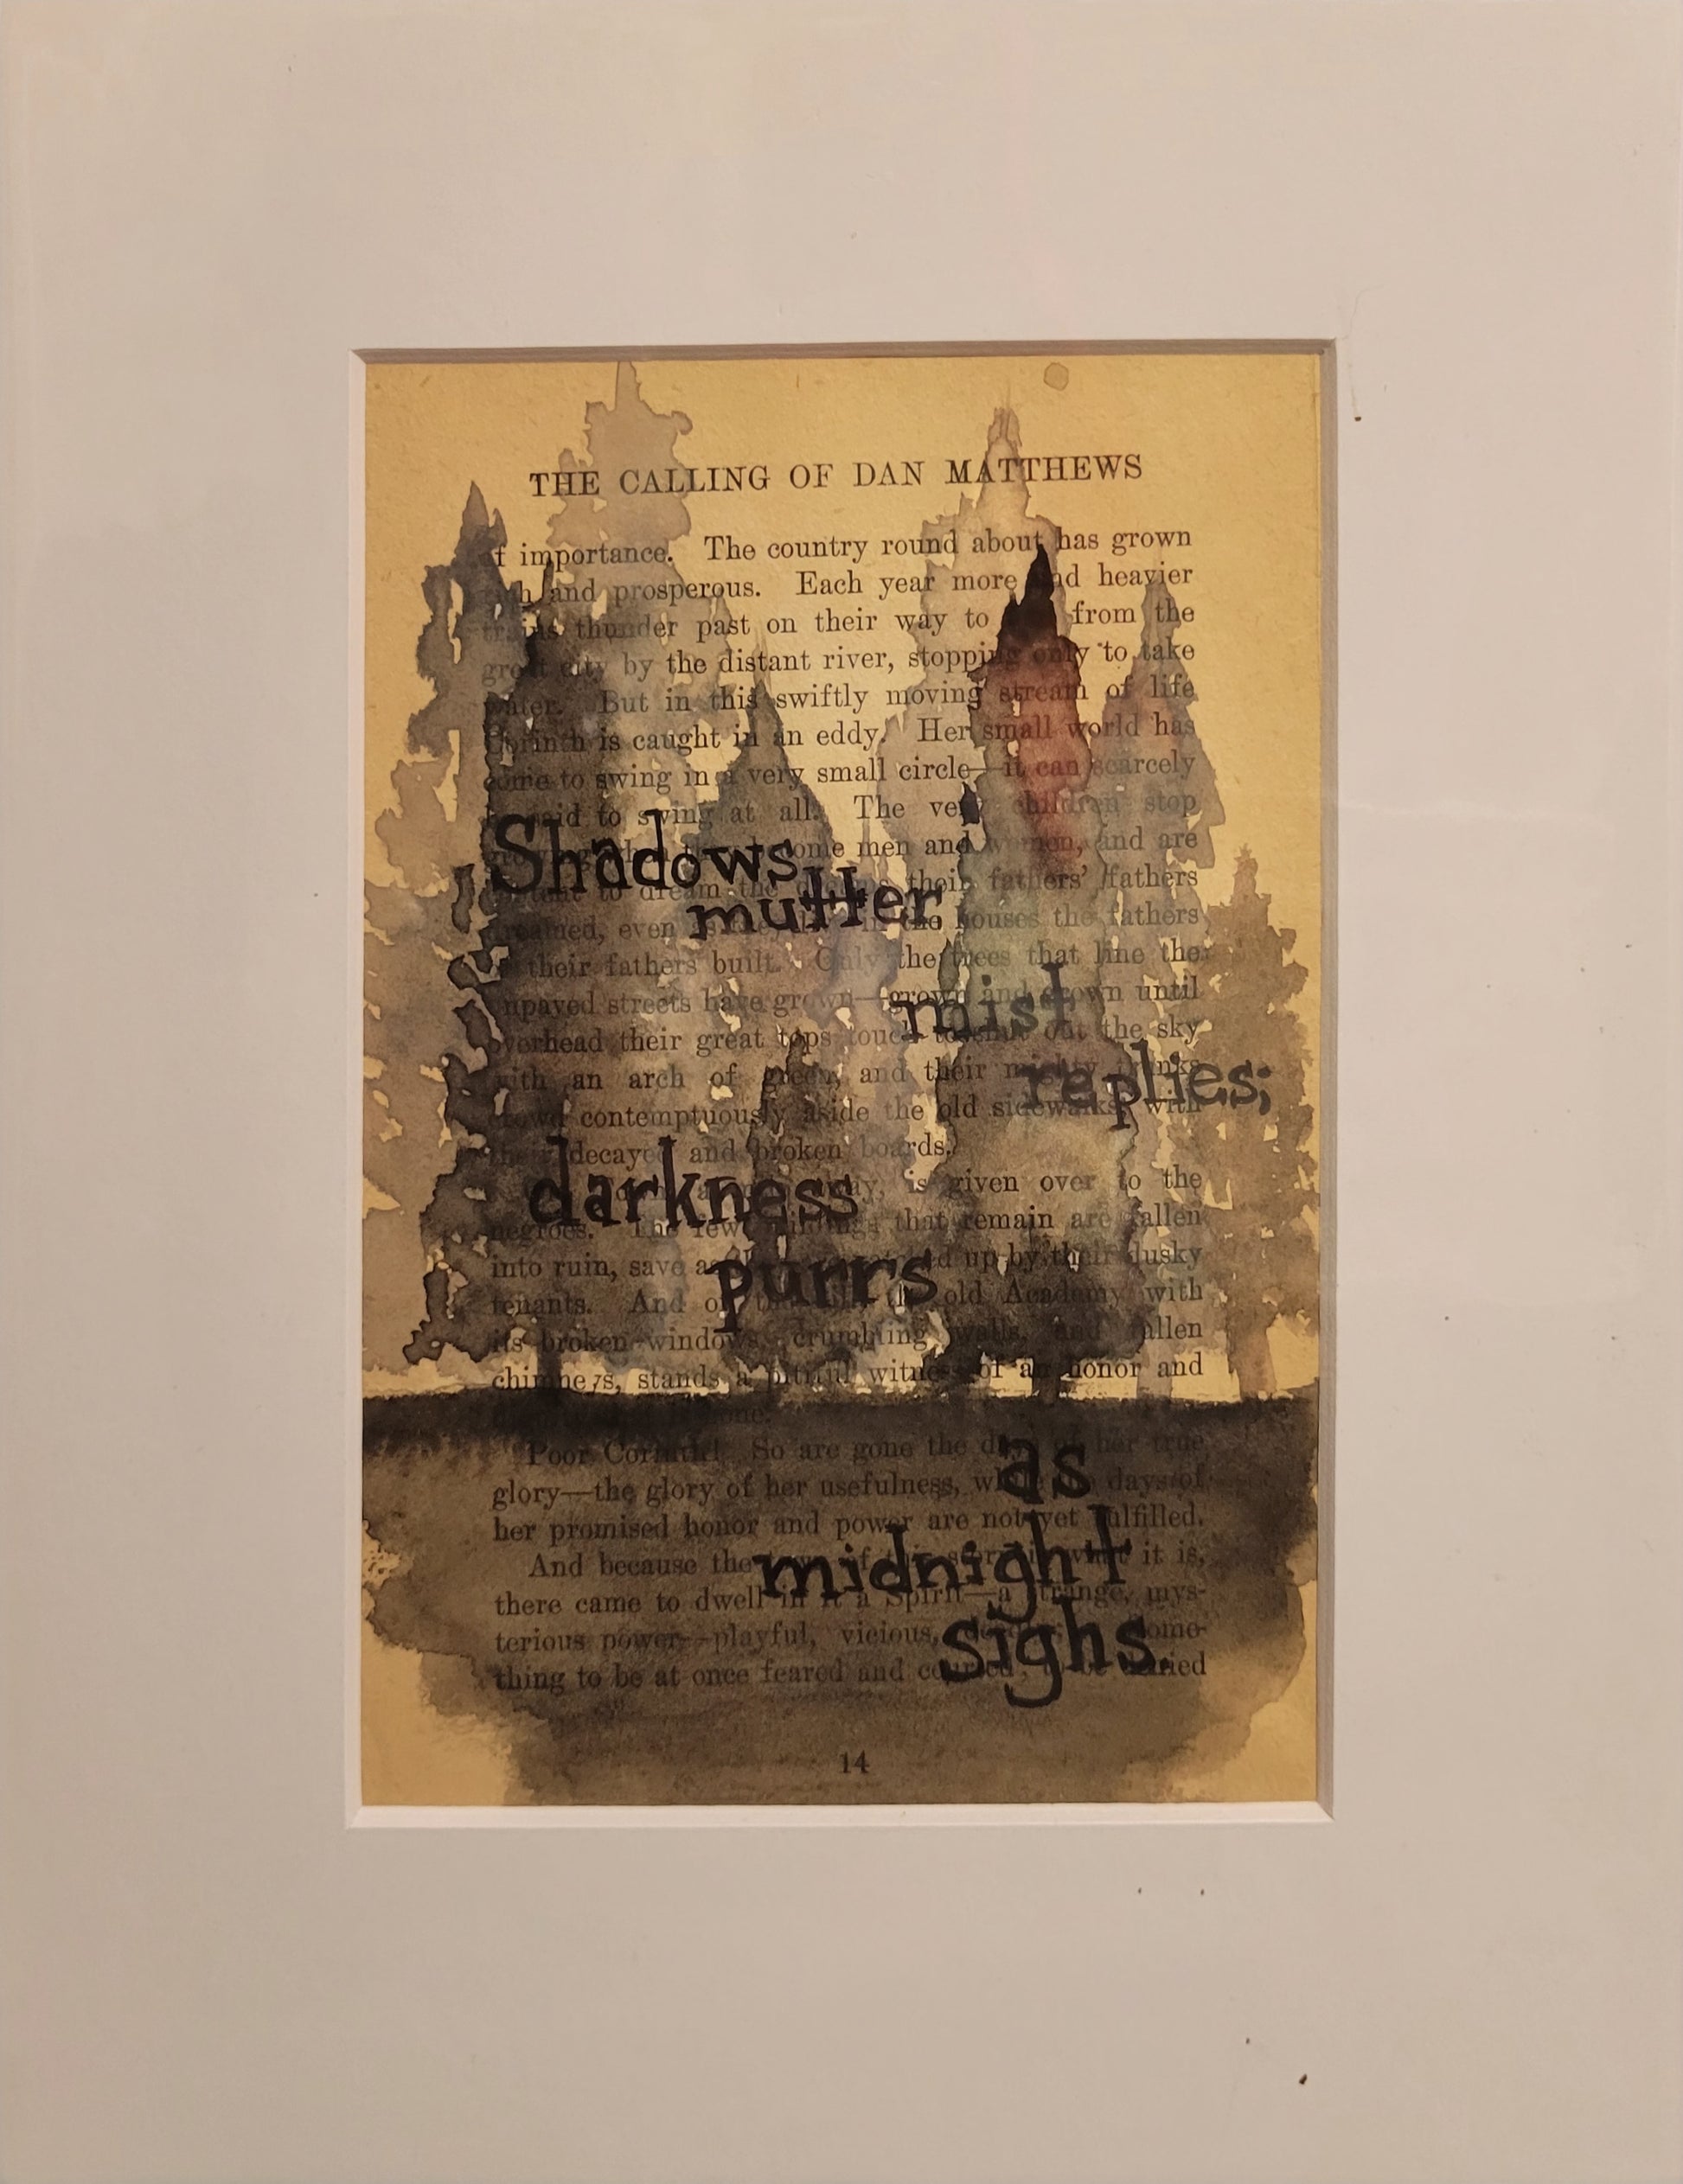 THE CALLING OF DAN MATTHEWS
of importance. The country round about has grown
rich and prosperous. Each year more and heavier
trains thunder past on their way to from the
great city by the distant river, stopping only to take
water. But in this swiftly moving stream of life
Corinth is caught in an eddy. Her small world has
come to swing in a very small circle—it can scarcely
said to swing at all. The very children stop
Shadows
men and women, and are
to dream the their fathers' fathers
mutter
dreamed, even as they the houses the fathers
their fathers built. Only the trees that line the
unpaved streets have grown—grown and grown until
mist
overhead their great tops touch to shut out the sky
with an arch of green, and their mighty trunks
replies;
crowd contemptuously aside the old sidewalks, with
their decayed and broken boards.
is given over to the
darkness
negroes. The few buildings that remain are fallen
into ruin, save as up by their dusky
purrs
tenants. And on the old Academy with
its broken windows, crumbling walls, and fallen
chimneys, stands a pitiful witness of an honor and
gone.
Poor Corinth! So are gone the days of her true
as
glory—the glory of her usefulness, while the days of
her promised honor and power are not yet fulfilled.
And because the town of this story is what it is,
midnight
there came to dwell in it a Spirit—a strange, mys-
terious power—playful, vicious, some-
sighs.
thing to be at once feared and courted, to be denied
14